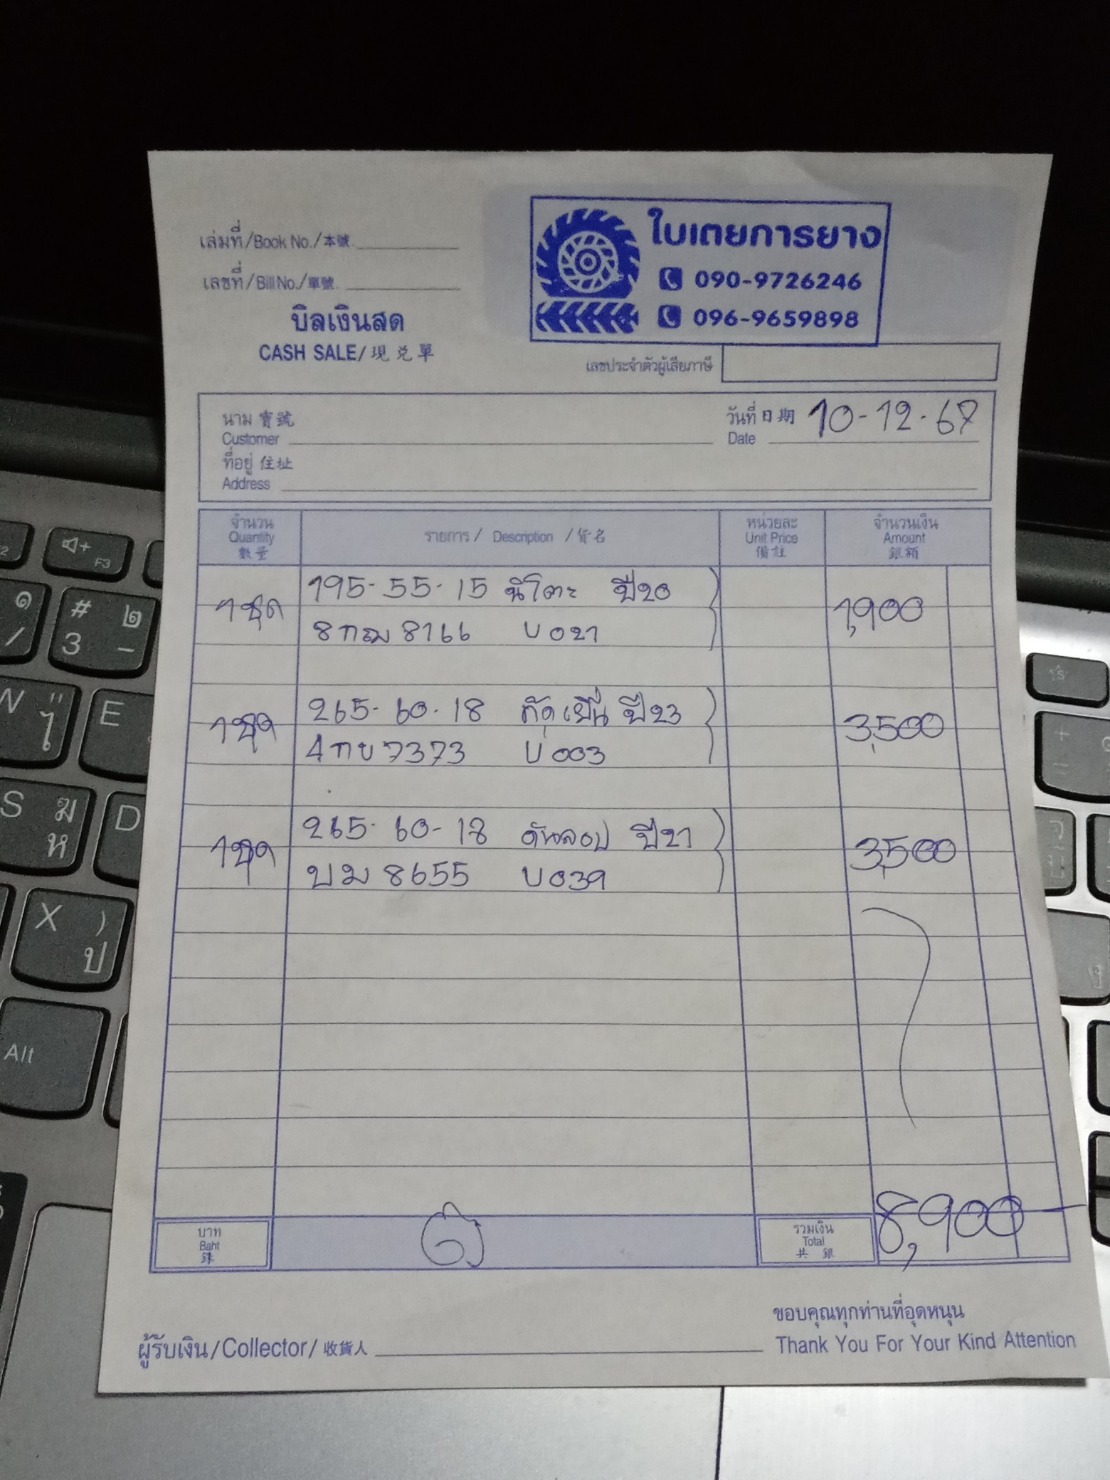 ใบเตยการยาง
090-9726246
096-9659898
เล่มที่/Book No./本號
เลขที่/Bill No./單號
บิลเงินสด
CASH SALE/現兑單
เลขประจำตัวผู้เสียภาษี
นาม 寶號
Customer
วันที่ 日期 10-12-67
Date
ที่อยู่ 住址
Address
จำนวน
Quantity
數量
รายการ / Description / 貨名
หน่วยละ
Unit Price
備註
จำนวนเงิน
Amount
銀額
1ชุด 195-55-15 นิโตะ ปี20 1,900
8กฌ 8166 บ021
1ชุด 265-60-18 ปี23 3,500
4กย 7373 บ003
1ชุด 265-60-18 ดันลอป ปี21 3,500
บม 8655 บ039
บาท
Baht
銖
รวมเงิน
Total
共銀
8,900
ขอบคุณทุกท่านที่อุดหนุน
ผู้รับเงิน/Collector/收貨人
Thank You For Your Kind Attention
F3
# ๒
3 -
๑
/
W "
ไ
E
S ฆ
ห
D
X )
ป
Alt